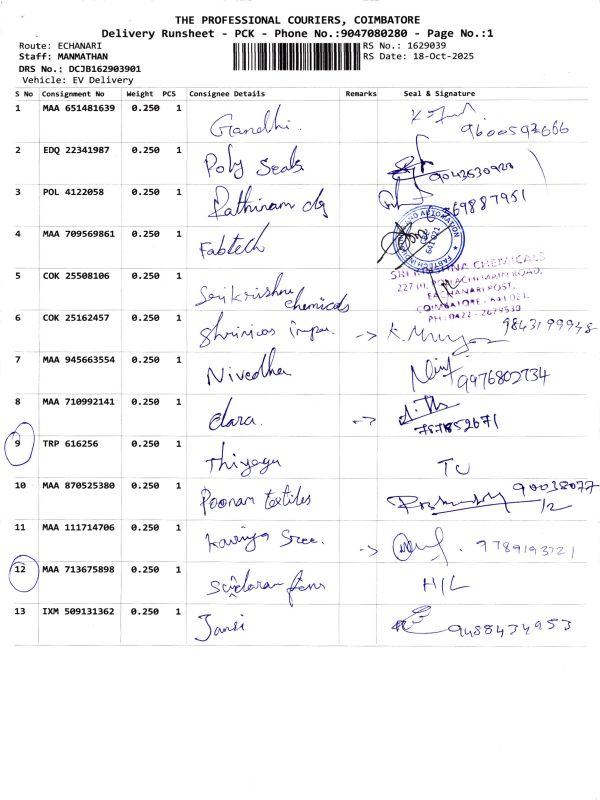 THE PROFESSIONAL COURIERS, COIMBATORE
Delivery Runsheet - PCK - Phone No.:9047080280 - Page No.:1
Route: ECHANARI RS No.: 1629039
Staff: MANMATHAN RS Date: 18-Oct-2025
DRS No.: DCJB162903901
Vehicle: EV Delivery
S No Consignment No Weight PCS Consignee Details Remarks Seal & Signature
1 MAA 651481639 0.250 1 Gandhi. 9600592666
2 EDQ 22341987 0.250 1 Poly Seals
3 POL 4122058 0.250 1 Rathinam clg 869887951
4 MAA 709569861 0.250 1 Fabtech
5 COK 25508106 0.250 1 Srikrishna chemicals
SRI KRISHNA CHEMICALS
POLLACHI MAIN ROAD,
EACHANARI POST,
COIMBATORE - 641 021.
PH: 0422 - 2674530
6 COK 25162457 0.250 1 -> 9843199948
7 MAA 945663554 0.250 1 Nivedha 9976802734
8 MAA 710992141 0.250 1 -> 787852671
9 TRP 616256 0.250 1 Thiyagu TC
10 MAA 870525380 0.250 1 Poonam textiles 90038077
12
11 MAA 111714706 0.250 1 Kaviya Sree. -> 9789193721
12 MAA 713675898 0.250 1 H/L
13 IXM 509131362 0.250 1 Jansi 9488434953